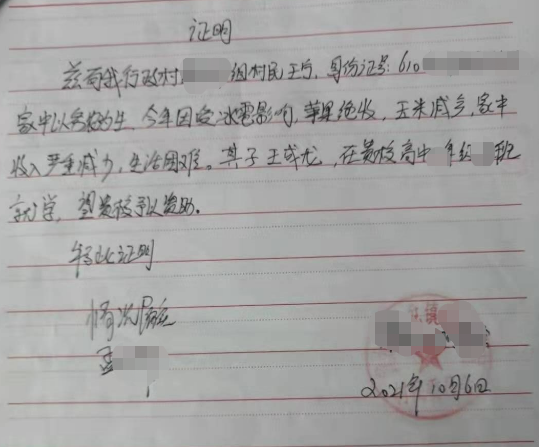 证明
兹有我行政村 组村民王 , 身份证号: 610
家中以务农为生, 今年因受冰雹影响, 苹果绝收, 玉米减产, 家中
收入严重减少, 生活困难。其子王成龙, 在贵校高中 年级 班
就学, 望贵校予以资助。
特此证明
情况属实
镇
2021年10月6日